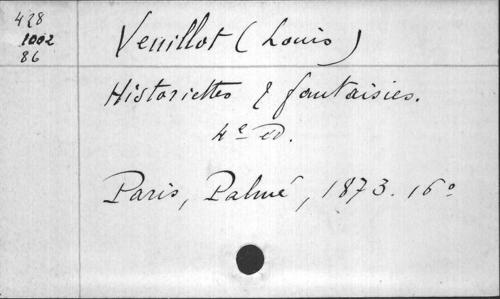 428
1002
86
Veuillot (Louis)
Historiettes & fantaisies.
4e ed.
Paris, Palmé, 1873. 16°